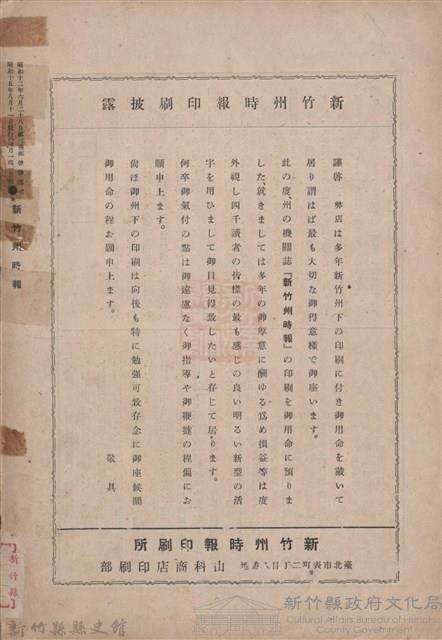 新竹州時報印刷披露
謹啓　弊店は多年新竹州下の印刷に付き御用命を戴いて
居り謂はば最も大切な御得意樣で御座います。
此の度、州の機關誌『新竹州時報』の印刷を御用命に預りま
した、就きましては多年の御厚意に酬ゆる爲め損益等は度
外視し四千讀者の皆樣の最も感じの良い明るい新型の活
字を用ひまして御目見得致したいと存じて居ります。
何卒御氣付の點は御遠慮なく御指導や御鞭撻の程偏にお
願申上ます。
尙ほ御州下の印刷は向後も特に勉强可致存念に御座候間
御用命の程お願申上ます。
敬具
新竹州時報印刷所
臺北市表町二丁目　番地　山科商店印刷部
昭和十二年六月二十八日
昭和十五年八月十
新竹州時報
新竹縣
新竹縣政府文化局
Cultural Affairs Bureau of Hsinchu
County Government
新竹縣縣史館